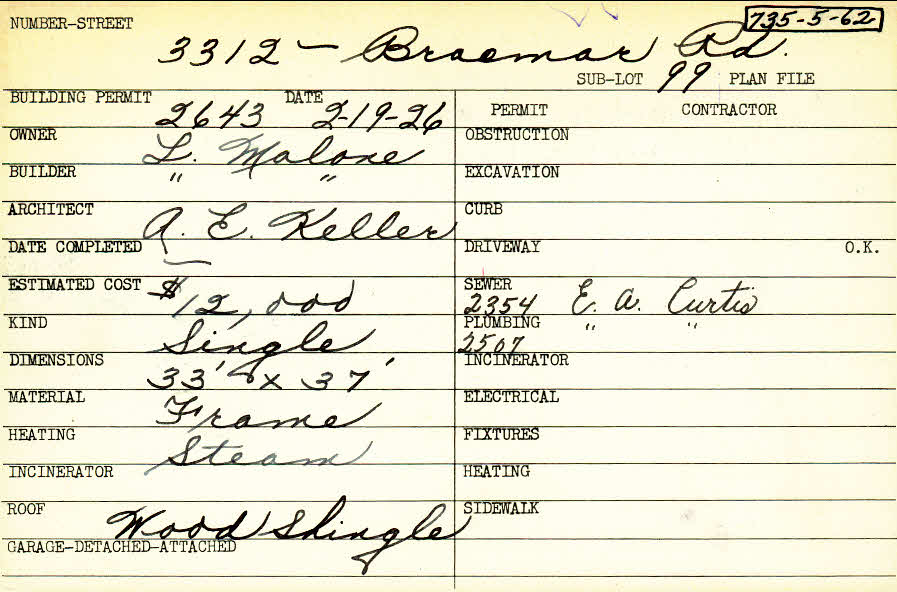 735-5-62
NUMBER-STREET
3312 - Braemar Rd.
SUB-LOT 99 PLAN FILE
BUILDING PERMIT 2643 DATE 2-19-26
PERMIT CONTRACTOR
OWNER L. Malone
OBSTRUCTION
BUILDER " "
EXCAVATION
ARCHITECT A. E. Keller
CURB
DATE COMPLETED
DRIVEWAY O.K.
ESTIMATED COST $12,000
SEWER 2354 E. A. Curtis
KIND Single
PLUMBING 2507 " "
DIMENSIONS 33' x 37'
INCINERATOR
MATERIAL Frame
ELECTRICAL
HEATING Steam
FIXTURES
INCINERATOR
HEATING
ROOF Wood Shingle
SIDEWALK
GARAGE-DETACHED-ATTACHED